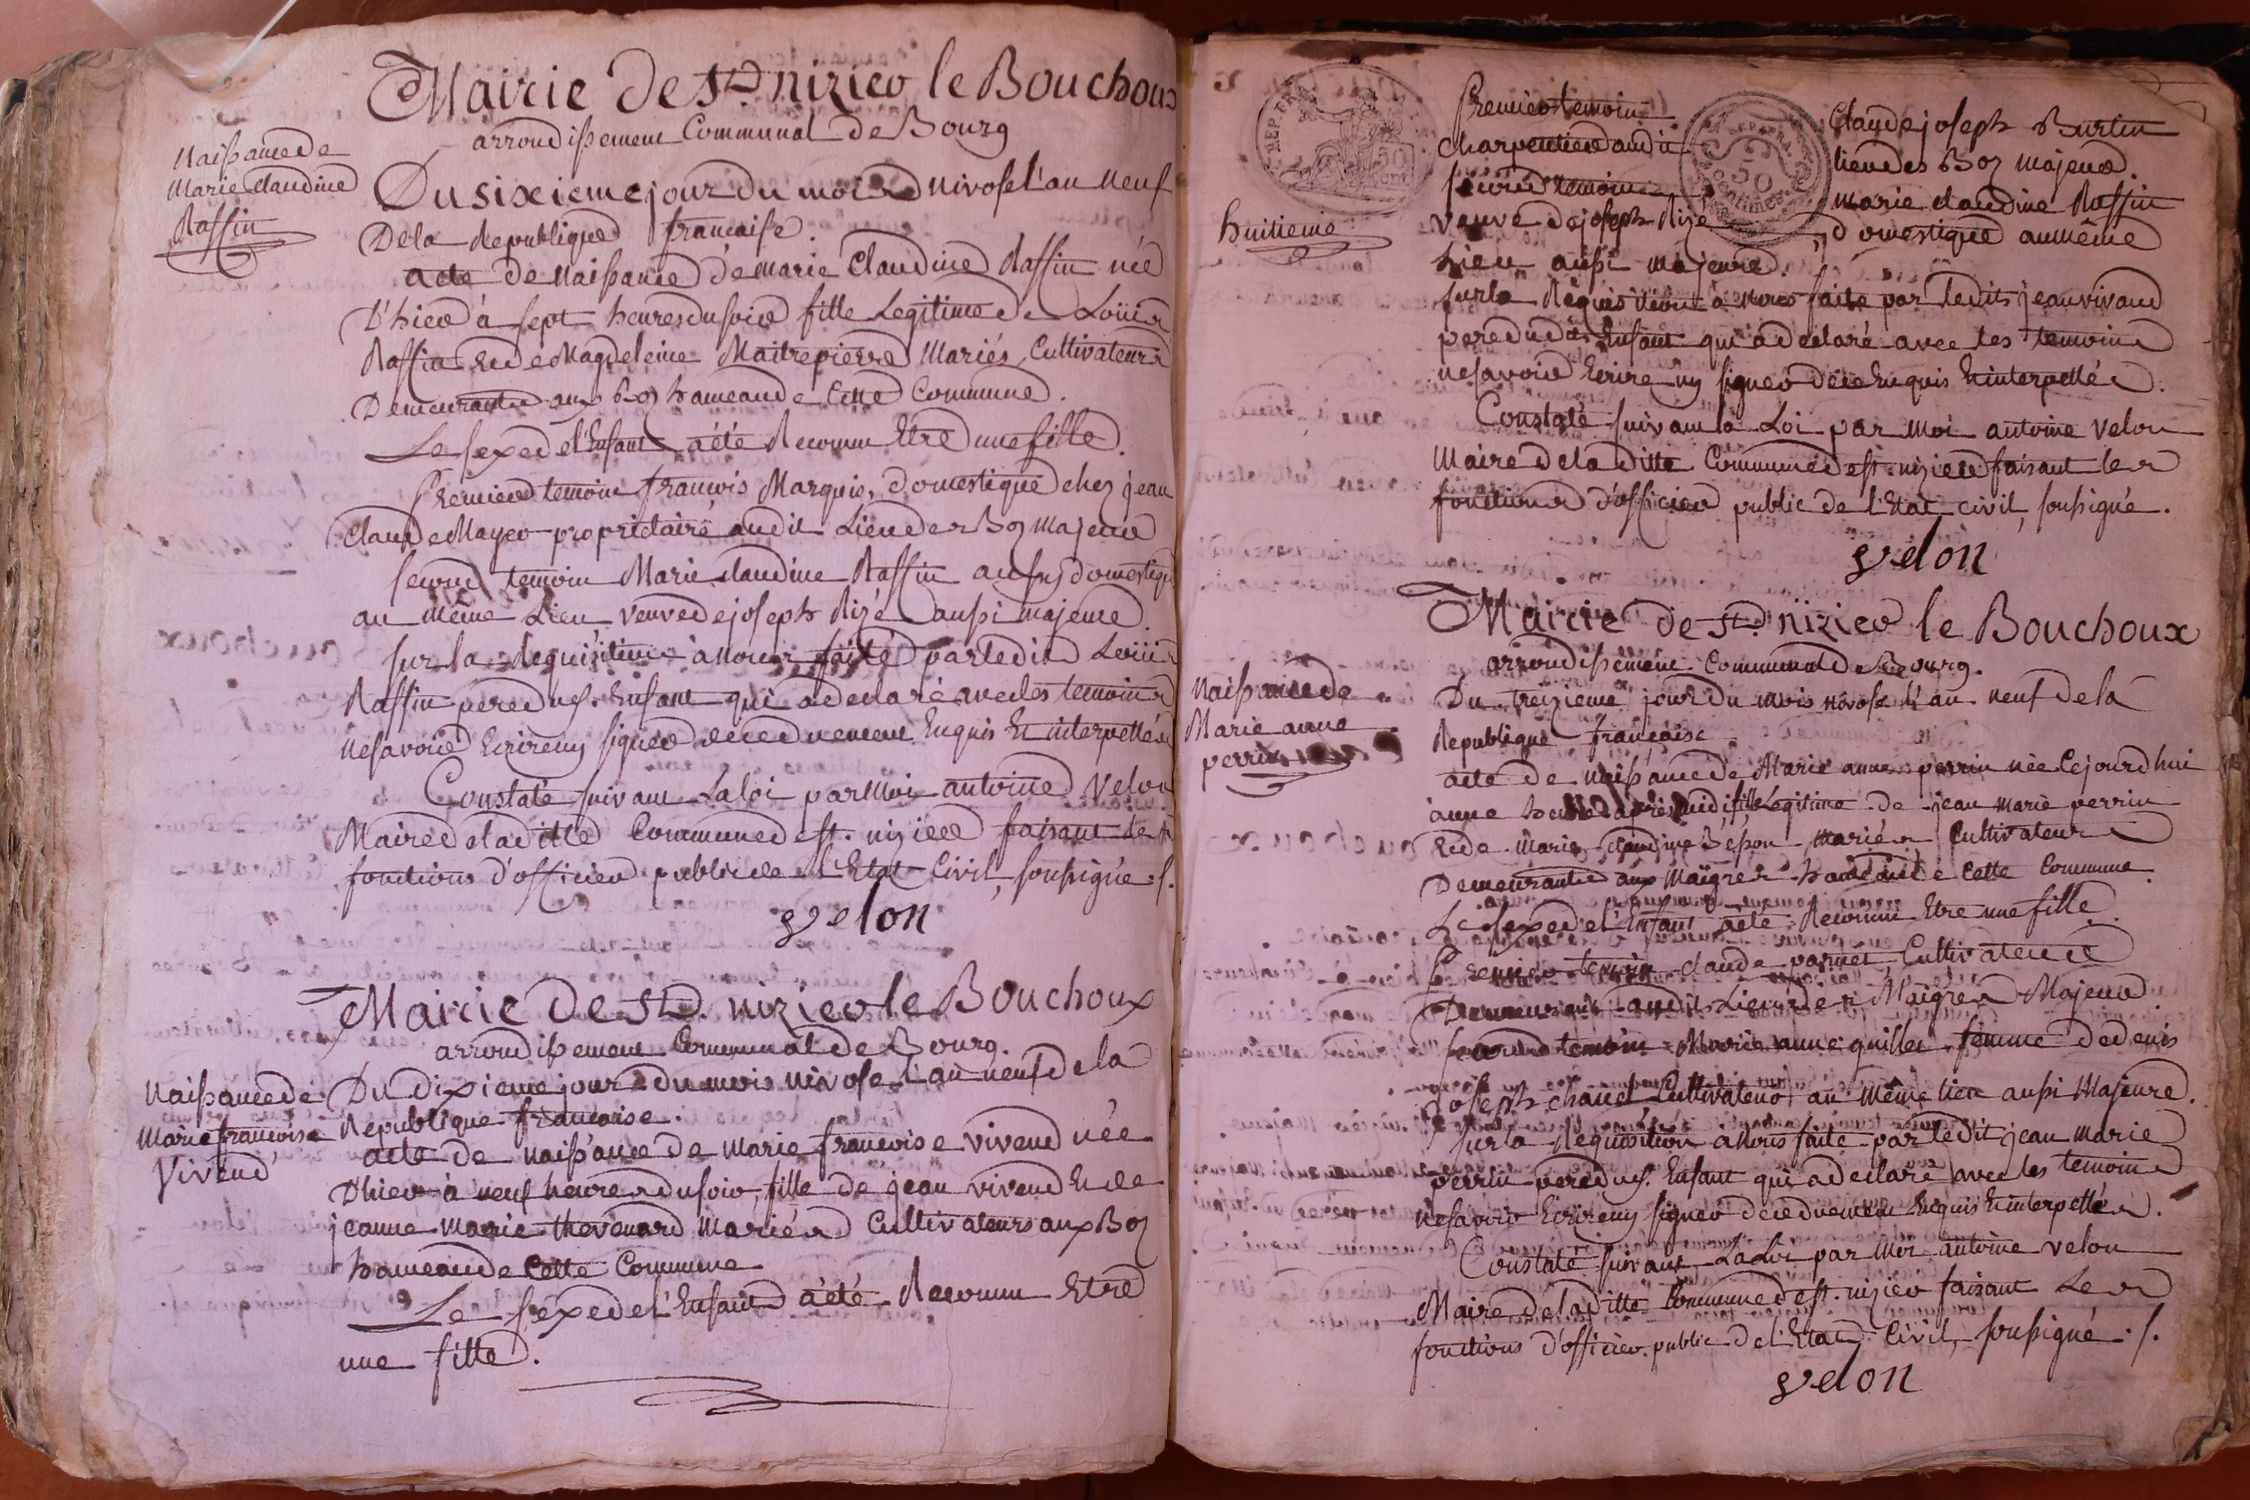 Mairie de St nizier le Bouchoux
arrondissement Communal de Bourg
Naissance de
Marie claudine
Raffin
Du sixieme jour du mois nivose l'an neuf
De la Republique francaise.
acte de Naissance de Marie Claudine Raffin née
D'hier à sept heures du soir fille Legitime de Loüis
Raffin Et de Magdeleine Maitrepierre Mariés, Cultivateurs
Demeurants aux Boz hameau de Cette Commune.
Le sexe de l'Enfant a été Reconnu Etre une fille.
Premier temoin francois Marquis, domestique chez jean
Claude Mayer proprietaire audit Lieu des Boz Majeur
second temoin Marie claudine Raffin aussy domestique
au même Lieu veuve de joseph Rizé aussi majeure.
sur la Requisition à Nous faite par ledit Loüis
Raffin pere dud. Enfant qui a declaré avec les temoins
ne savoir Ecrire ny signer de ce duement Enquis Et interpellés
Constaté suivant La loi par Moi antoine Velon
Maire de la ditte Commune de st. nizier faisant les
fonctions d'officier public de l'Etat Civil, soussigné ./.
velon
Mairie de St. nizier le Bouchoux
arrondissement Communal de Bourg.
Naissance de
Marie francoise
Vivend
Du dixieme jour du mois nivose l'an neuf de la
Republique francaise.
acte de naissance de Marie francoise vivend née
D'hier à neuf heures du soir, fille de jean vivend Et de
jeanne Marie thevenard Mariés Cultivateurs aux Boz
hameau de Cette Commune
Le séxe de l'Enfant a été Reconnu Etre
une fille.
REP. FRA.
50
huitieme
Premier temoin Claude joseph Burtin
charpentier audit lieu des Boz majeur.
second temoin marie claudine Raffin
veuve de joseph Rizé domestique au même
Lieu aussi majeure.
sur la Requisition à nous faite par ledit jean vivand
pere dudit Enfant qui a déclaré avec les temoins
ne savoir Ecrire ny signer de ce Enquis Et interpellés.
Constaté suivant la Loi par Moi antoine velon
Maire de la ditte Commune de st. nizier faisant les
fonctions d'officier public de l'Etat civil, soussigné.
velon
Mairie de St. nizier le Bouchoux
arrondissement Communal de Bourg.
Naissance de
Marie anne
perrin
Du treizieme jour du mois nivose l'an neuf de la
Republique francaise
acte de naissance de Marie anne perrin née Cejourd'hui
à une heure d'après midi fille Legitime de jean Marie perrin
Et de Marie claudine Mariés Cultivateurs
Demeurants aux Maigres hameau de Cette Commune.
Le sexe de l'Enfant a été Reconnu Etre une fille.
Premier temoin claude Cultivateur
Demeurant audit Lieu des Maigres Majeur.
second temoin Marie anne femme de denis
joseph Cultivateur au même lieu aussi Majeure.
sur la Requisition à Nous faite par ledit jean marie
perrin pere dud. Enfant qui a declaré avec les temoins
ne savoir Ecrire ny signer de ce duement Enquis Et interpellés.
Constaté suivant La Loi par Moi antoine velon
Maire de la ditte Commune de st. nizier faisant Les
fonctions d'officier public de l'Etat Civil, soussigné ./.
velon